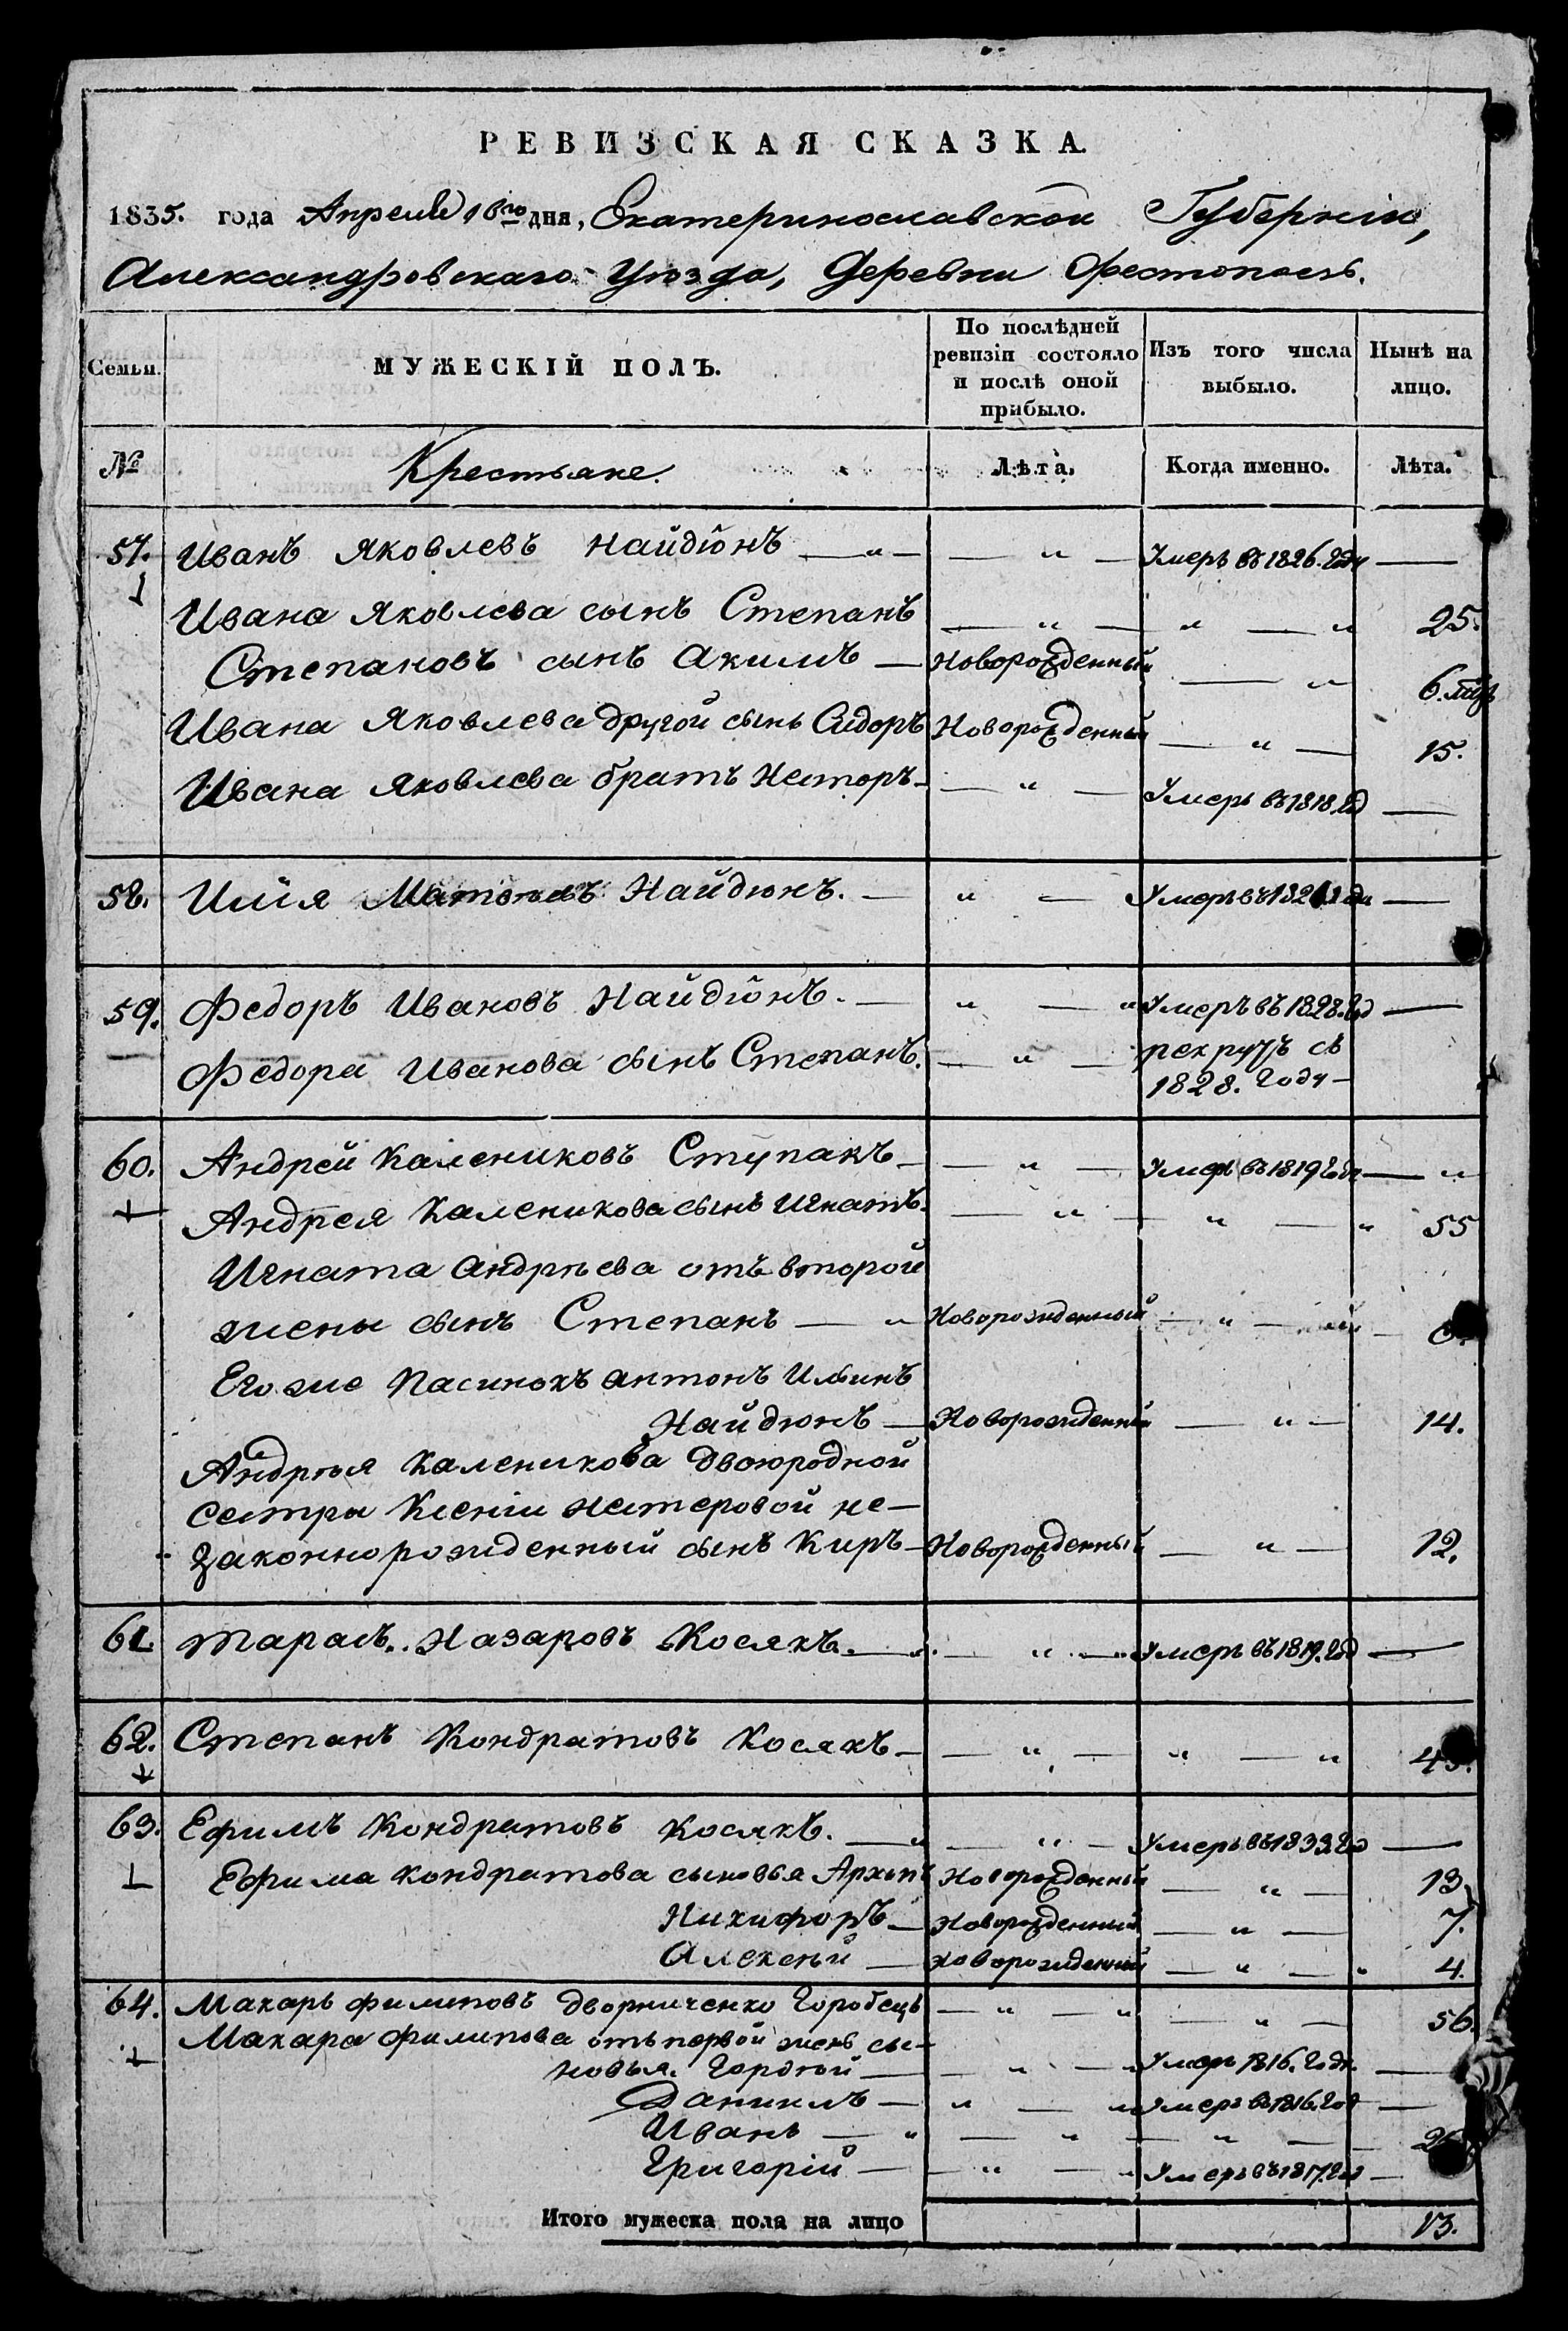 РЕВИЗСКАЯ СКАЗКА.
1835. года Апреля 16го дня, Екатеринославской Губерніи,
Александровскаго Уѣзда, Деревни Фестополь.
Семьи. МУЖЕСКІЙ ПОЛЪ. По послѣдней ревизіи состояло и послѣ оной прибыло. Изъ того числа выбыло. Нынѣ на лицо.
№ Крестьяне. Лѣта. Когда именно. Лѣта.
57. Иванъ Яковлевъ Найдюнъ — „ — — „ — Умеръ въ 1826. году —
Ивана Яковлева сынъ Степанъ — „ — „ — „ 25.
Степановъ сынъ Акимъ — Новорожденный — „ 6.
Ивана Яковлева другой сынъ Сидоръ Новорожденный — „ — 15.
Ивана Яковлева братъ Несторъ — — „ — Умеръ въ 1818. год —
58. Илія Матвѣевъ Найдюнъ. — „ — Умеръ въ —
59. Федоръ Ивановъ Найдюнъ. — „ — „ Умеръ въ 1828. год —
Федора Иванова сынъ Степанъ. — „ — рекрутъ съ
1828. году —
60. Андрей Калениковъ Ступакъ — — „ — Умеръ въ 1819 год — „
Андрея Каленикова сынъ Игнатъ. — „ — „ — „ 55
Игната Андрѣева отъ второй
жены сынъ Степанъ — „ Новорожденный — „ —
Его же Пасинокъ Антонъ Ильинъ
Найдюнъ — Новорожденный — „ — 14.
Андрѣя Каленикова двоюродной
сестры Ксеніи Нестеровой не—
законнорожденный сынъ Киръ — Новорожденный — „ — 12.
61. Тарасъ Назаровъ Косякъ. — „ — „ — „ Умеръ въ 1819. год —
62. Степанъ Кондратовъ Косякъ — — „ — „ — „
63. Ефимъ Кондратовъ Косякъ. — „ — „ — Умеръ въ 1833. год —
Ефима Кондратова сыновья Архипъ Новорожденный — „ — 13.
Никифоръ — Новорожденный — „ — 7.
Алексѣй — Новорожденный — „ — „ 4.
64. Макаръ Филиповъ Дворниченко Горобецъ — „ — „ — „ — 56.
Макара Филипова отъ первой жены сы-
новья. Гордѣй — — „ — „ Умеръ 1816. году. —
Данилъ — „ — „ Умеръ въ 1816. год —
Иванъ — „ — „ — „ —
Григорій — — „ — „ Умеръ въ 1817. год —
Итого мужеска пола на лицо 13.